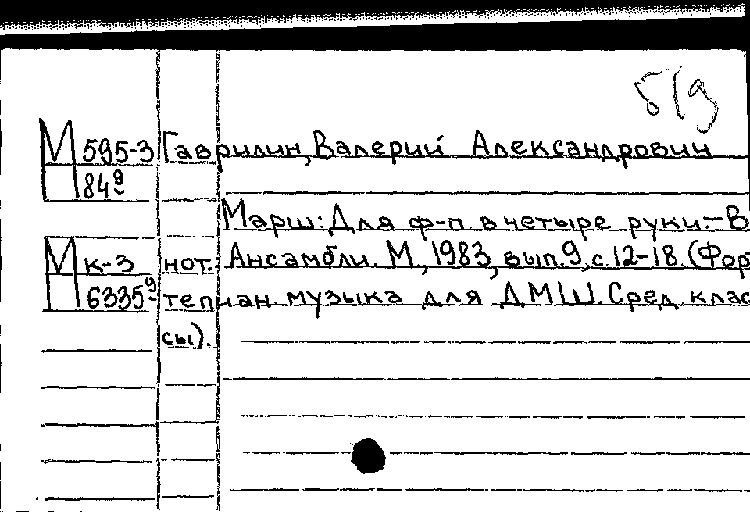 б/д
М 595-3 Гаврилин, Валерий Александрович
Н 84⁹
Марш: Для ф-п. в четыре руки. - В
М к-3 нот.: Ансамбли. М., 1983, вып. 9, с. 12-18. (Фор
Н 6335⁹ тепиан. музыка для ДМШ. Сред. клас
сы).